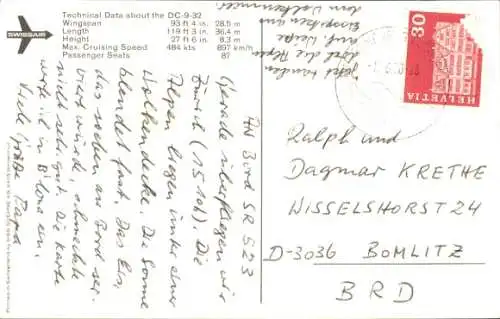 SWISSAIR
Technical Data about the DC-9-32
Wingspan 93 ft 4 in 28.5 m
Length 119 ft 3 in 36.4 m
Height 27 ft 6 in 8.3 m
Max. Cruising Speed 484 kts 897 km/h
Passenger Seats 87
AN Bord SR 523
Gerade überfliegen wir
Zürich (15 10h). Die
Alpen liegen unter einer
Wolkendecke. Die Sonne
blendet fast. Das Eis,
das soeben an Bord ser-
viert wurde, schmeckte
nicht sehr gut. Die Karte
werfe ich in
Viele Grüße Papa
HELVETIA
30
Ralph und
Dagmar KRETHE
WISSELSHORST 24
D-3036 BOMLITZ
BRD